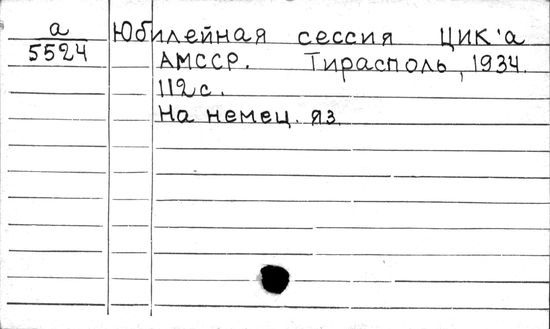 а
5524
Юбилейная сессия ЦИК'а
АМССР. Тирасполь, 1934.
112 с.
На немец. яз.